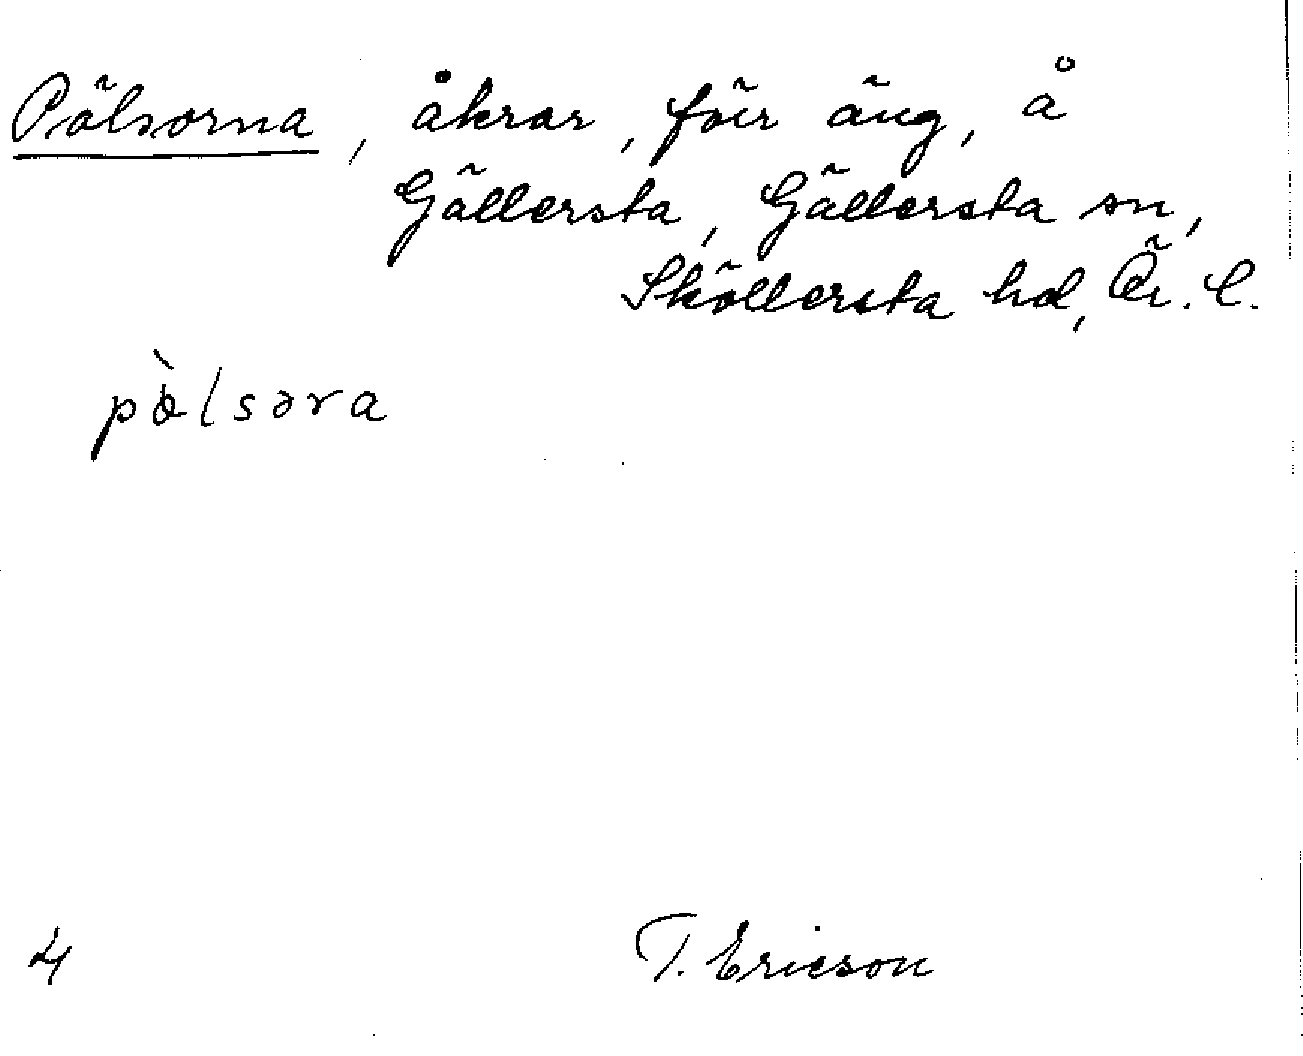 Pölsorna, åkrar, förr äng, å
Gällersta, Gällersta sn,
Sköllersta hd, Ör. l.
pò̵lsəra
4
T. Ericson